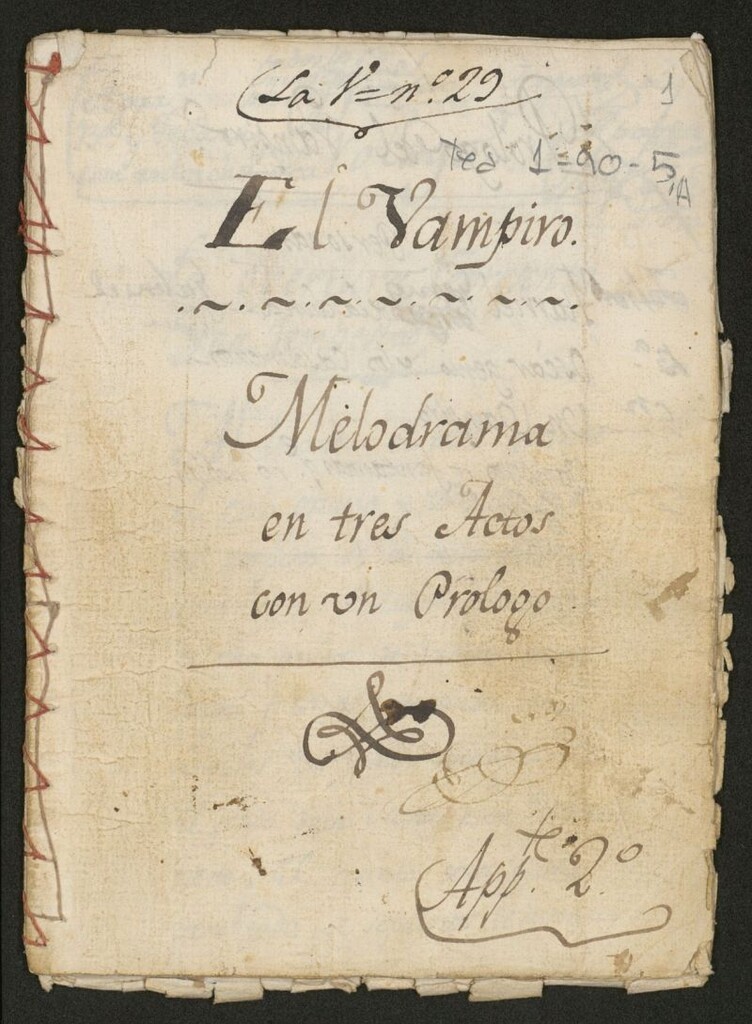 La V= nº 29
1
Tea 1=90-5,A
El Vampiro.
Melodrama
en tres Actos
con vn Prologo
App.te 2º